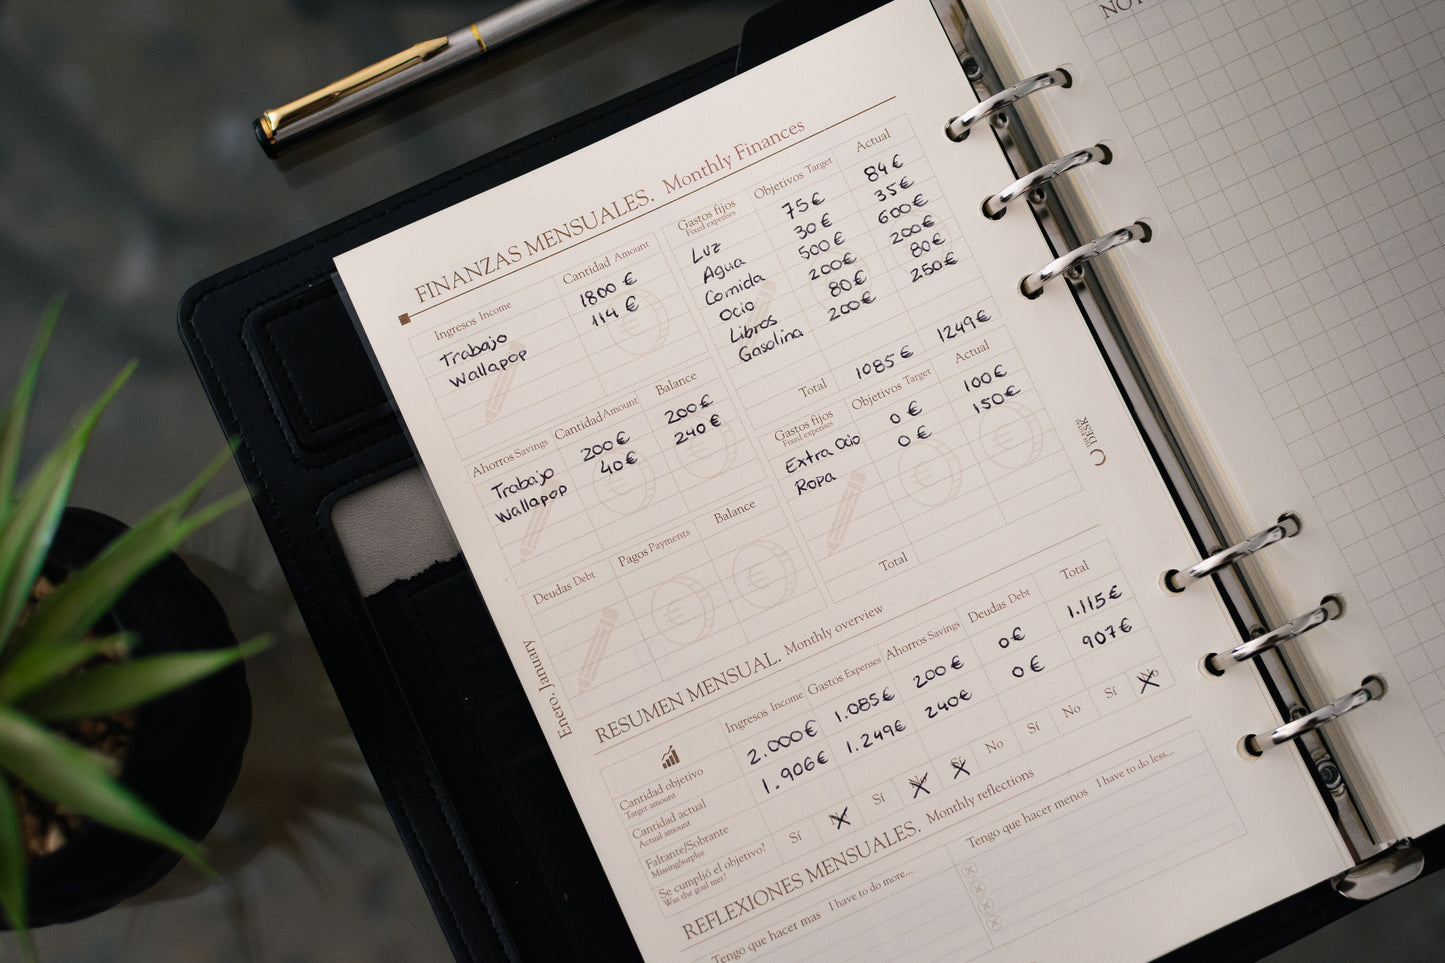 NOT
FINANZAS MENSUALES. Monthly Finances
Ingresos Income Cantidad Amount
Trabajo 1800 €
Wallapop 114 €
Ahorros Savings Cantidad Amount Balance
Trabajo 200 € 200 €
Wallapop 40 € 240 €
Deudas Debt Pagos Payments Balance
Gastos fijos Objetivos Target Actual
Fixed expenses
Luz 75 € 84 €
Agua 30 € 35 €
Comida 500 € 600 €
Ocio 200 € 200 €
Libros 80 € 80 €
Gasolina 200 € 250 €
Total 1085 € 1249 €
Gastos fijos Objetivos Target Actual
Fixed expenses
Extra Ocio 0 € 100 €
Ropa 0 € 150 €
Total
DESK
Enero. January
RESUMEN MENSUAL. Monthly overview
Ingresos Income Gastos Expenses Ahorros Savings Deudas Debt Total
Cantidad objetivo 2.000 € 1.085 € 200 € 0 € 1.115 €
Target amount
Cantidad actual 1.906 € 1.249 € 240 € 0 € 907 €
Actual amount
Faltante/Sobrante
Missing/surplus
Se cumplió el objetivo? Sí Sí No Sí No Sí No Sí No
Was the goal met?
REFLEXIONES MENSUALES. Monthly reflections
Tengo que hacer mas I have to do more...
Tengo que hacer menos I have to do less...